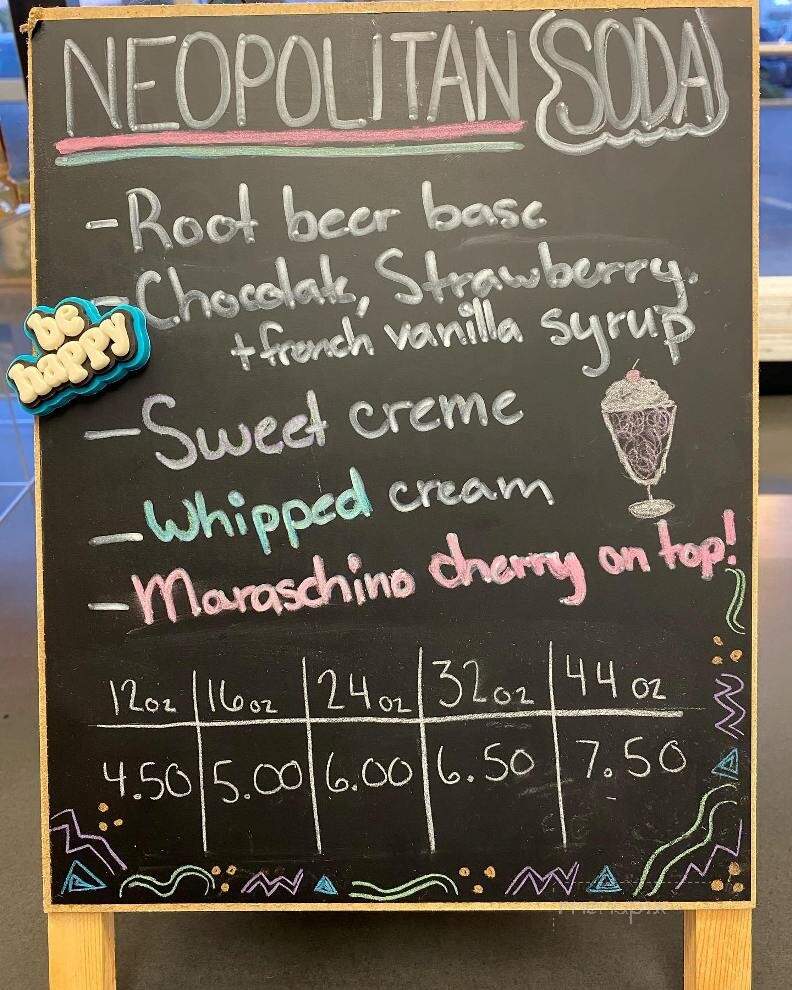 NEOPOLITAN SODA
- Root beer base
- Chocolate, Strawberry
+ french vanilla syrup
be
happy
- Sweet creme
- Whipped cream
- Maraschino cherry on top!
12oz 16oz 24oz 32oz 44oz
4.50 5.00 6.00 6.50 7.50